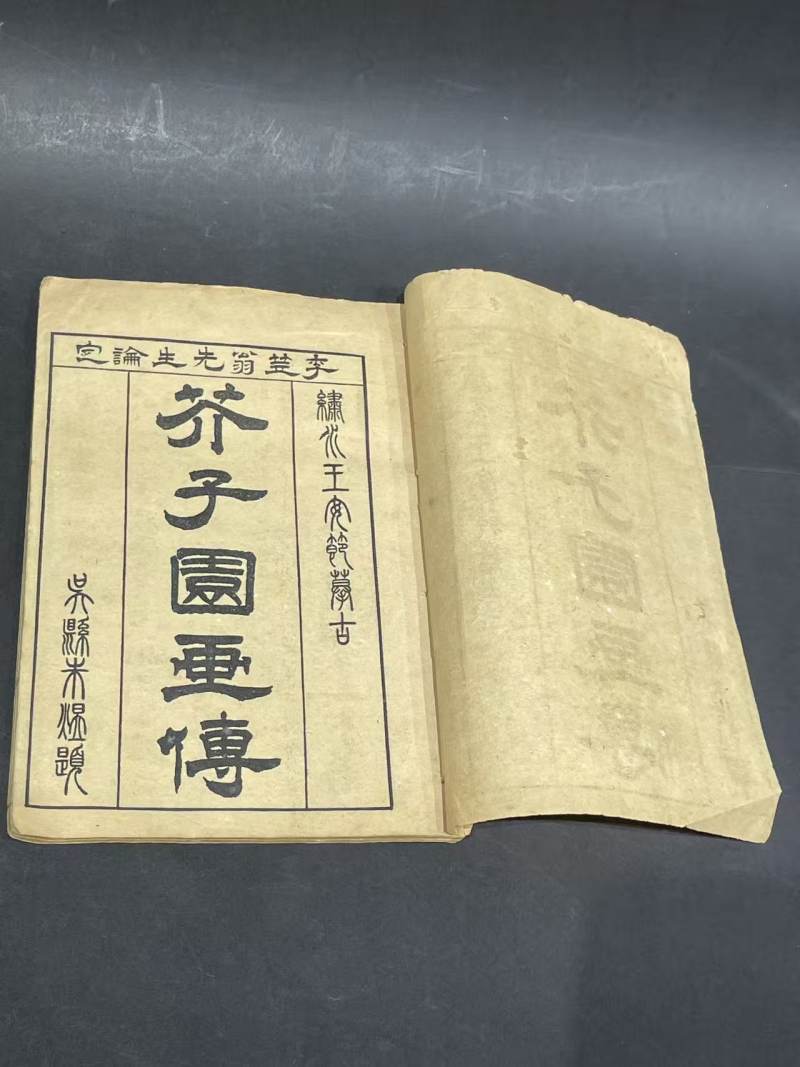 李笠翁先生論定
繡水王安節摹古
芥子園畫傳
吳縣朱題